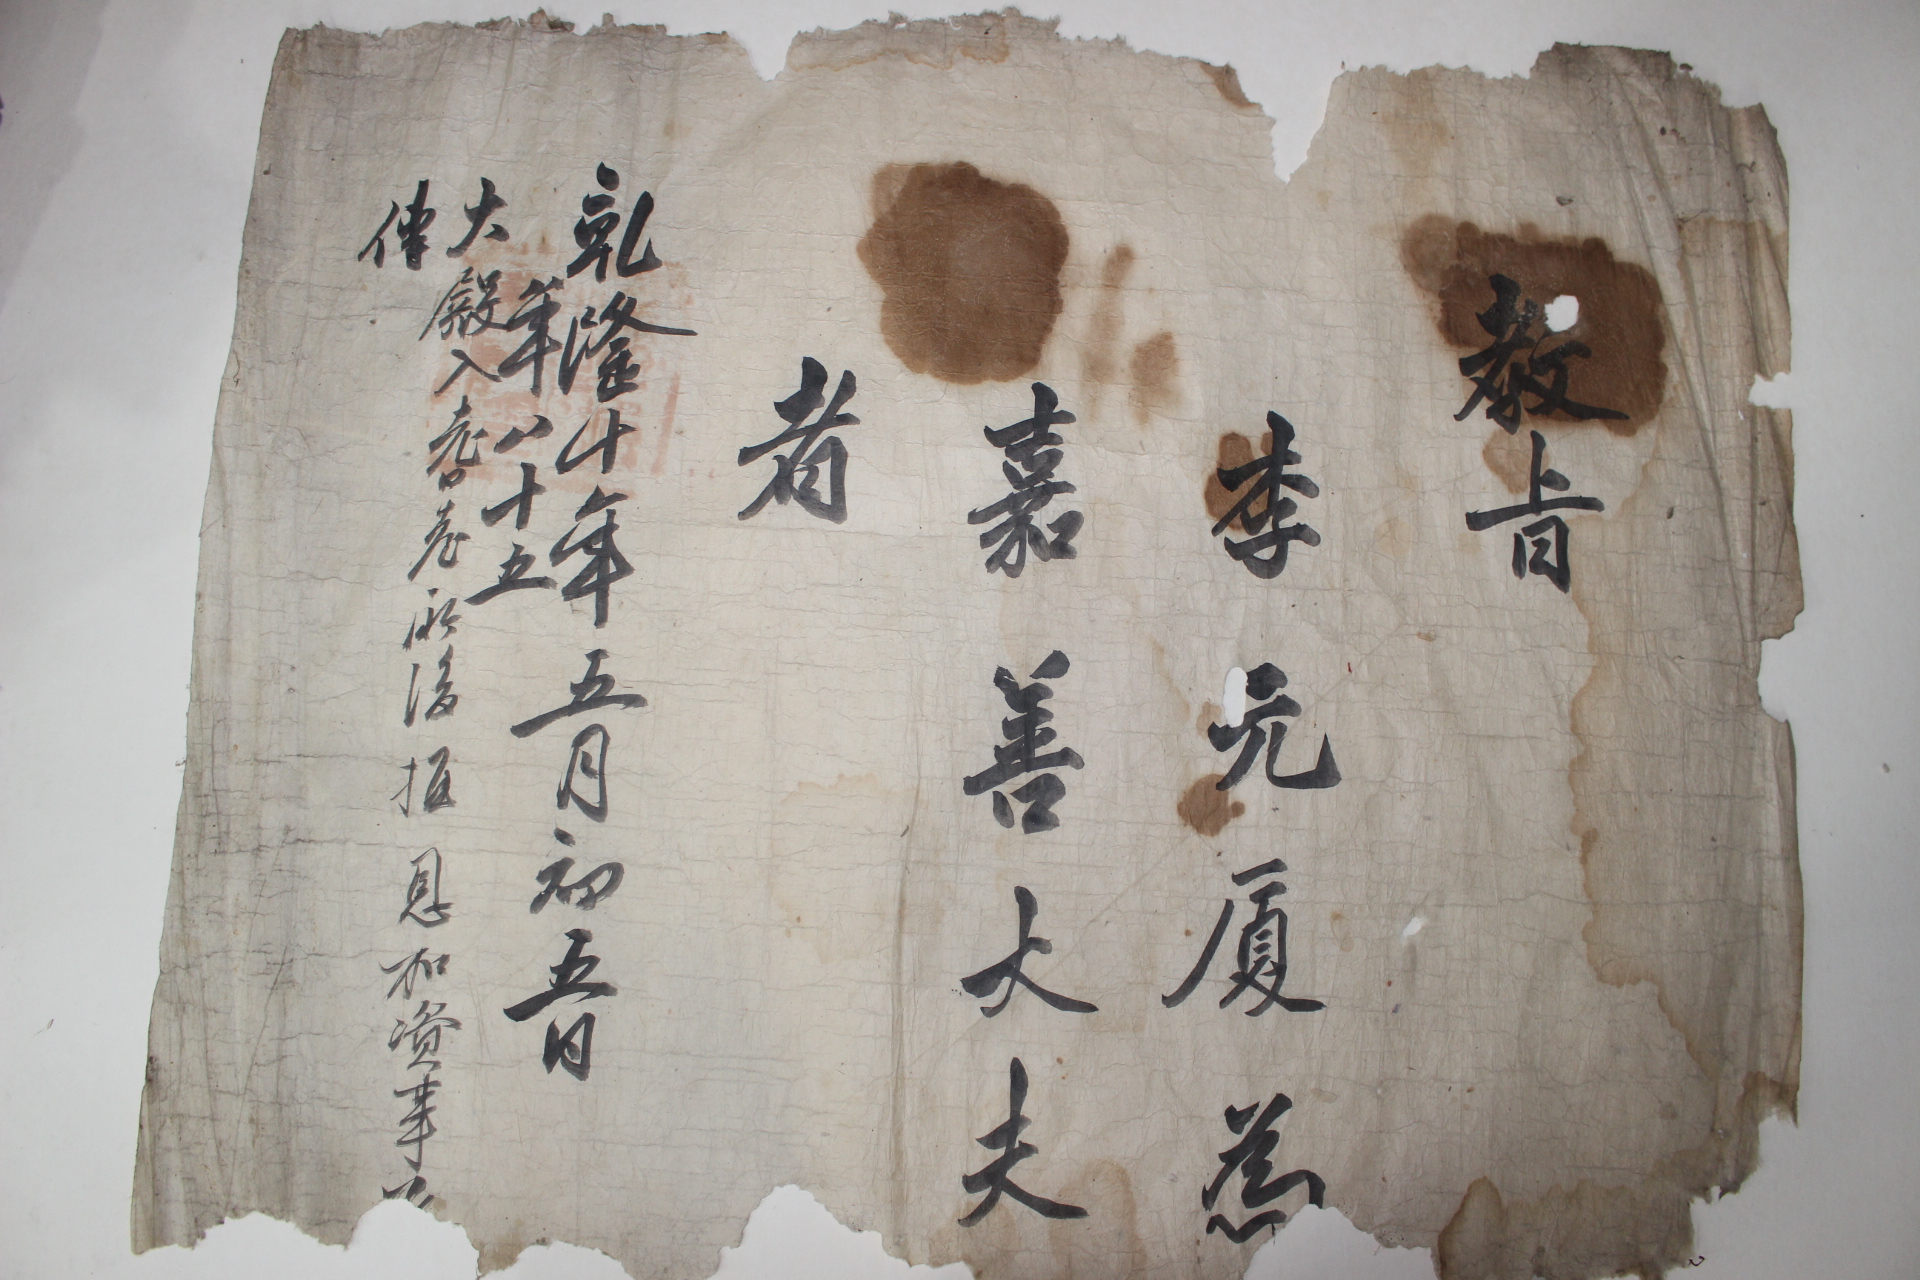 教旨
李元厦爲
嘉善大夫
者
乾隆十年五月初五日
年八十五
大殿入耆老所後推恩加資事承
傳